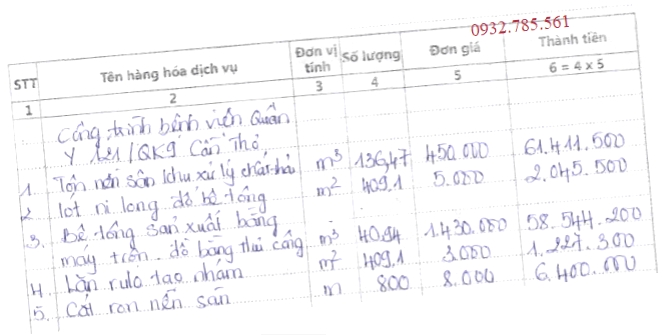 0932.785.561
STT Tên hàng hóa dịch vụ Đơn vị tính Số lượng Đơn giá Thành tiền
1 2 3 4 5 6 = 4 x 5
Công trình bệnh viện Quân
Y 121/QK9 Cần Thơ,
1. Tôn nền sân khu xử lý chất thải m³ 136,47 450.000 61.411.500
2. lót ni long đổ bê tông m² 409.1 5.000 2.045.500
3. Bê tông sản xuất bằng
máy trộn đổ bằng thủ công m³ 40.94 1.430.000 58.544.200
4. Lăn rulo tạo nhám m² 409,1 3.000 1.227.300
5. Cắt ron nền sân m 800 8.000 6.400.000